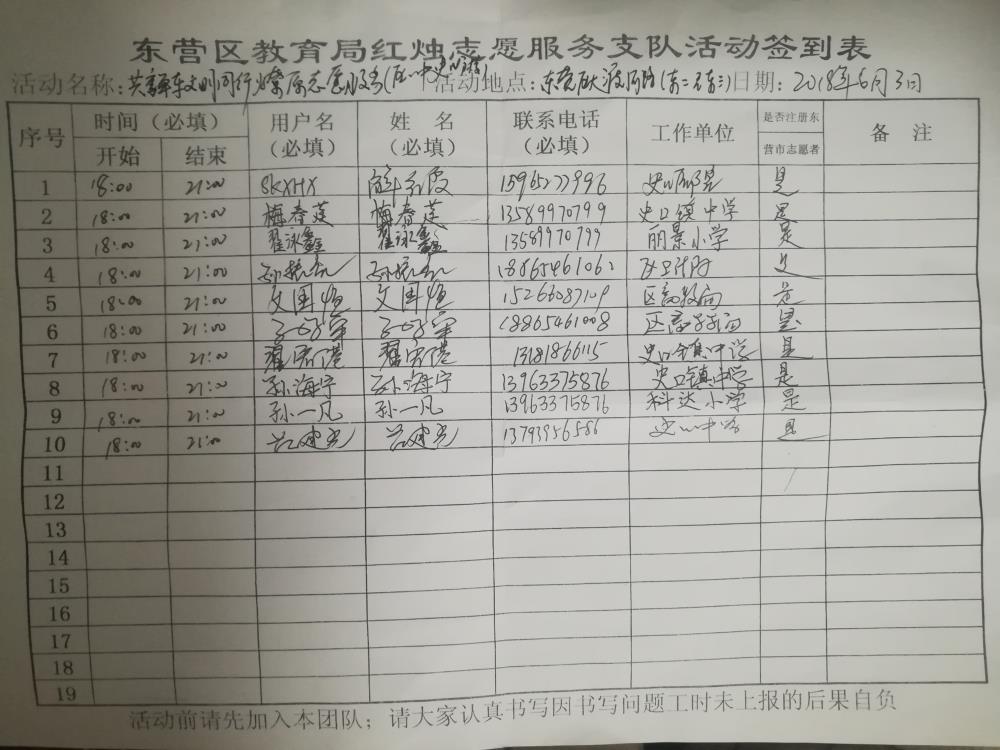 东营区教育局红烛志愿服务支队活动签到表
活动名称: 活动地点: 日期: 2018年6月3日
序号 时间（必填） 用户名（必填） 姓 名（必填） 联系电话（必填） 工作单位 是否注册东营市志愿者 备 注
开始 结束
1 18:00 21:00 SKXHX 15965277996 是
2 18:00 21:00 梅春莲 梅春莲 13589970799 史口镇中学 是
3 18:00 21:00 翟泳鑫 翟泳鑫 13589970799 丽景小学 是
4 18:00 21:00 18865461062
5 18:00 21:00 文国恒 文国恒 15266087109 是
6 18:00 21:00 18865461008 是
7 18:00 21:00 13181866115 史口镇中学 是
8 18:00 21:00 孙海宁 孙海宁 13963375876 史口镇中学 是
9 18:00 21:00 孙一凡 孙一凡 13963375876 科达小学 是
10 18:00 21:00 13793956586 是
11
12
13
14
15
16
17
18
19
活动前请先加入本团队；请大家认真书写因书写问题工时未上报的后果自负